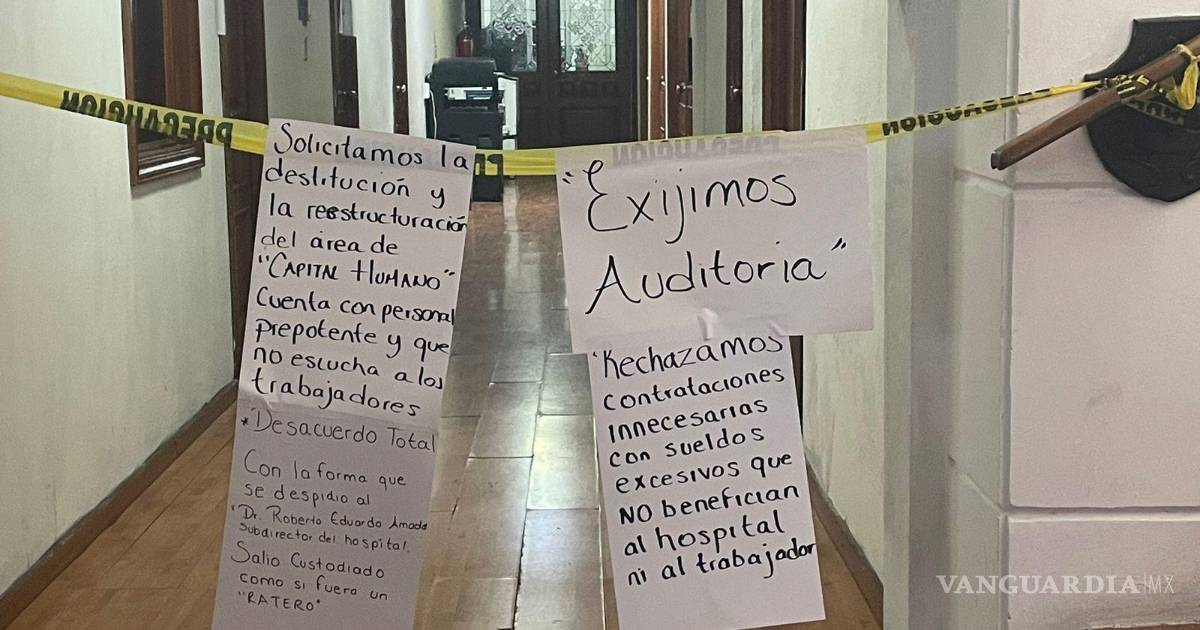 PRECAUCION
PRECAUCION
PRECAUCION
Solicitamos la
destitución y
la reestructuración
del área de
"CAPITAL HUMANO"
Cuenta con personal
prepotente y que
no escucha a los
trabajadores
*Desacuerdo Total
Con la forma que
se despidio al
"Dr. Roberto Eduardo Amada
Subdirector del hospital.
Salio Custodiado
como si fuera un
"RATERO"
"Exijimos
Auditoria"
"Rechazamos
contrataciones
innecesarias
con sueldos
excesivos que
NO benefician
al hospital
ni al trabajador
VANGUARDIA MX